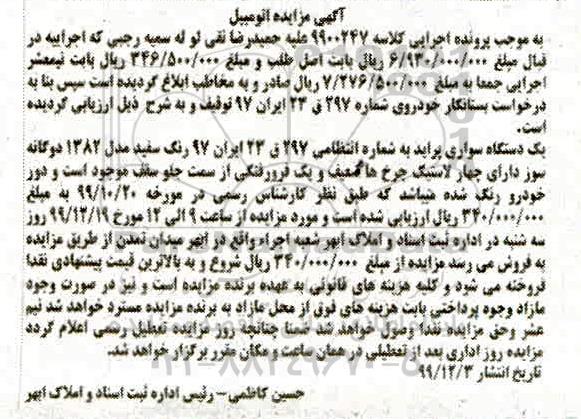 آگهی مزایده اتومبیل
به موجب پرونده اجرایی کلاسه ۹۹۰۰۲۴۷ علیه حمیدرضا نقی لو له سمیه رجبی که اجرائیه در
قبال مبلغ ۶/۹۳۰/۰۰۰/۰۰۰ ریال بابت اصل طلب و مبلغ ۳۴۶/۵۰۰/۰۰۰ ریال بابت نیمعشر
اجرایی جمعا به مبلغ ۷/۲۷۶/۵۰۰/۰۰۰ ریال صادر و به مخاطب ابلاغ گردیده است سپس بنا به
درخواست بستانکار خودروی شماره ۲۹۷ ق ۲۳ ایران ۹۷ توقیف و به شرح ذیل ارزیابی گردیده
است.
یک دستگاه سواری پراید به شماره انتظامی ۲۹۷ ق ۲۳ ایران ۹۷ رنگ سفید مدل ۱۳۸۲ دوگانه
سوز دارای چهار لاستیک چرخ ها ضعیف و یک فرورفتگی از سمت جلو سقف موجود است و دور
خودرو رنگ شده میباشد که طبق نظر کارشناس رسمی در مورخه ۹۹/۱۰/۲۰ به مبلغ
۳۴۰/۰۰۰/۰۰۰ ریال ارزیابی شده است و مورد مزایده از ساعت ۹ الی ۱۲ مورخ ۹۹/۱۲/۱۹ روز
سه شنبه در اداره ثبت اسناد و املاک ابهر شعبه اجراء واقع در ابهر میدان تمدن از طریق مزایده
به فروش می رسد مزایده از مبلغ ۳۴۰/۰۰۰/۰۰۰ ریال شروع و به بالاترین قیمت پیشنهادی نقدا
فروخته می شود و کلیه هزینه های قانونی به عهده برنده مزایده است و نیز در صورت وجود
مازاد وجوه پرداختی بابت هزینه های فوق از محل مازاد به برنده مزایده مسترد خواهد شد نیم
عشر وحق مزایده نقدا وصول خواهد شد ضمنا چنانچه روز مزایده تعطیل رسمی اعلام گردد
مزایده روز اداری بعد از تعطیلی در همان ساعت و مکان مقرر برگزار خواهد شد.
تاریخ انتشار ۹۹/۱۲/۳
حسین کاظمی - رئیس اداره ثبت اسناد و املاک ابهر